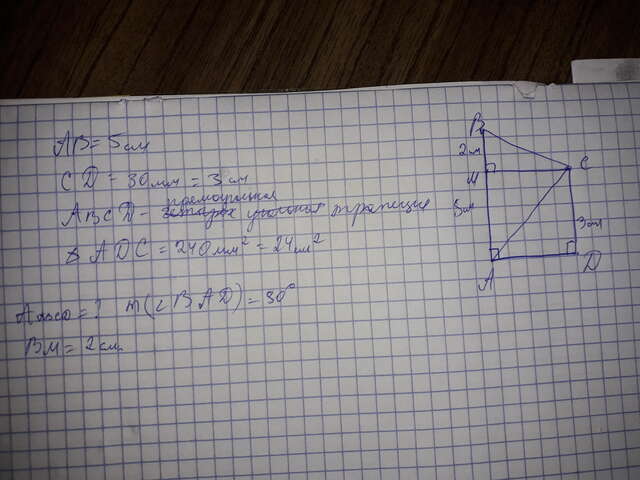 AB = 5 см
CD = 30 мм = 3 см
прямоугольная
ABCD - угольная трапеция
ADC = 240 мм² = 24 см²
Aabcd = ? m(∠BAD) = 30°
BM = 2 см
B
2см
M
C
5см
3см
A
D